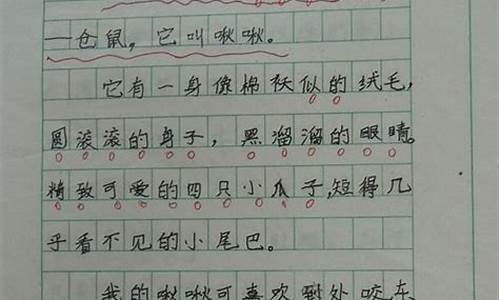 一仓鼠，它叫啾啾。
它有一身像棉袄似的绒毛，
圆滚滚的身子，黑溜溜的眼睛。
精致可爱的四只小爪子，短得几
乎看不见的小尾巴。
我的啾啾可喜欢到处咬东